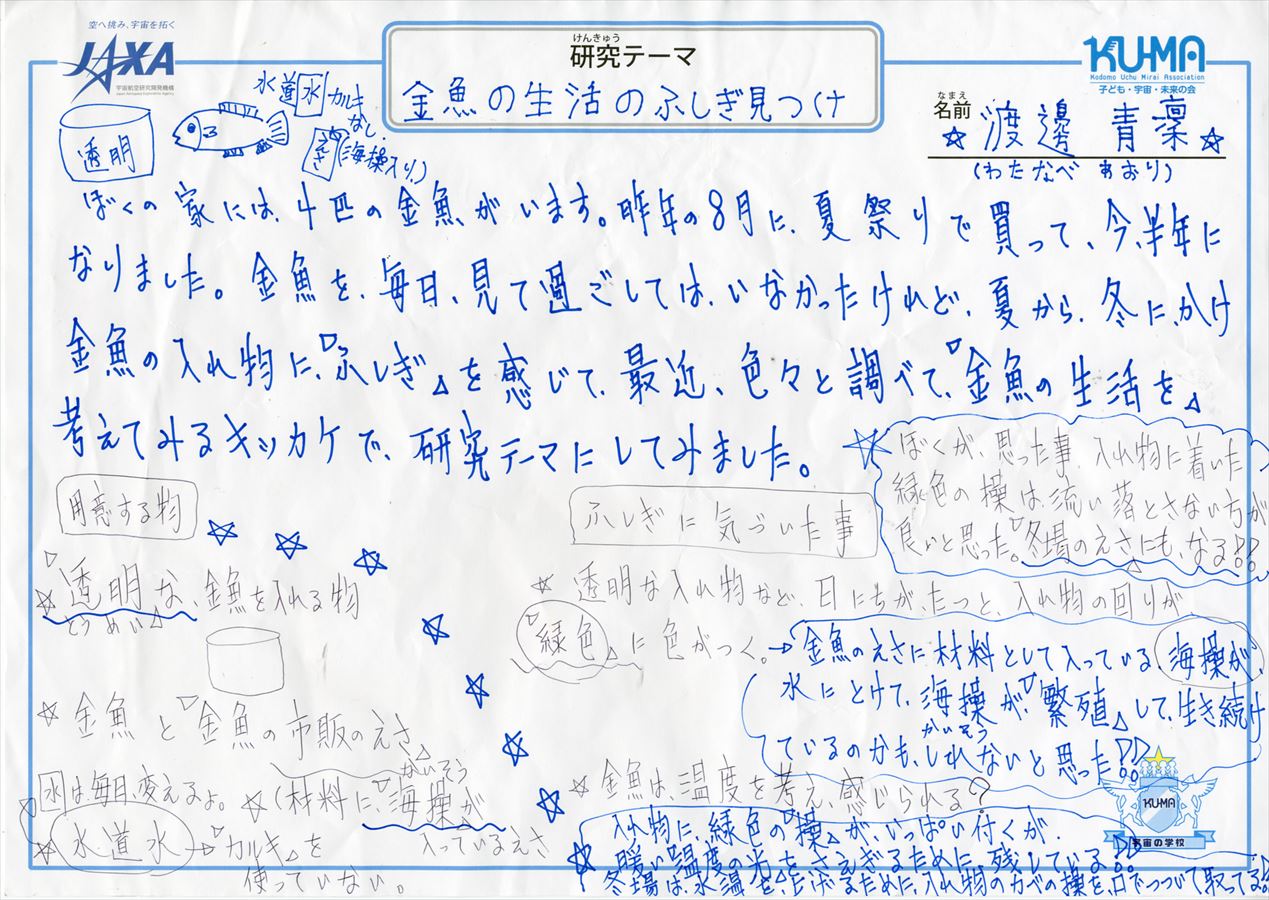 空へ挑み、宇宙を拓く
JAXA
宇宙航空研究開発機構
Japan Aerospace Exploration Agency
けんきゅう
研究テーマ
金魚の生活のふしぎ見つけ
KU-MA
Kodomo Uchu Mirai Association
子ども・宇宙・未来の会
なまえ
名前
☆渡邊 青凜☆
(わたなべ あおり)
透明
水道水カルキ
なし。
えさ
(海操入り。)
ぼくの家には、4匹の金魚がいます。昨年の8月に、夏祭りで買って、今、半年に
なりました。金魚を、毎日、見て過ごしては、いなかったけれど、夏から、冬に、かけ
金魚の入れ物に、『ふしぎ』を感じて、最近、色々と調べて、『金魚の生活を』
考えてみるキッカケで、研究テーマにしてみました。
☆ぼくが、思った事、入れ物に着いた
緑色の操は、流い落とさない方が
良いと思った。『冬場のえさにも、なる!!』
用意する物
☆『透明な』、金魚を入れる物
とうめい
☆金魚と『金魚の市販のえさ』
水は毎日、変えるよ。
☆(材料に、『海操が』
かいそう
入っているえさ
☆水道水→『カルキ』を
使っていない。
ふしぎに気づいた事
☆透明な入れ物など、日にちが、たつと、入れ物の回りが、
『緑色』に色がつく。
→金魚のえさに材料として入っている、海操が、
水にとけて、海操が、『繁殖』して、生き続け
かいそう
ているのかも、しれないと思った!!
☆金魚は、温度を考え、感じられる?
☆入れ物に、緑色の『操』が、いっぱい付くが、
暖い『温度の光』をさえぎるために、残している!!
冬場は、水温を、上げるために、入れ物のカベの操を、口でつついて取ってる!!
KU-MA
宇宙の学校